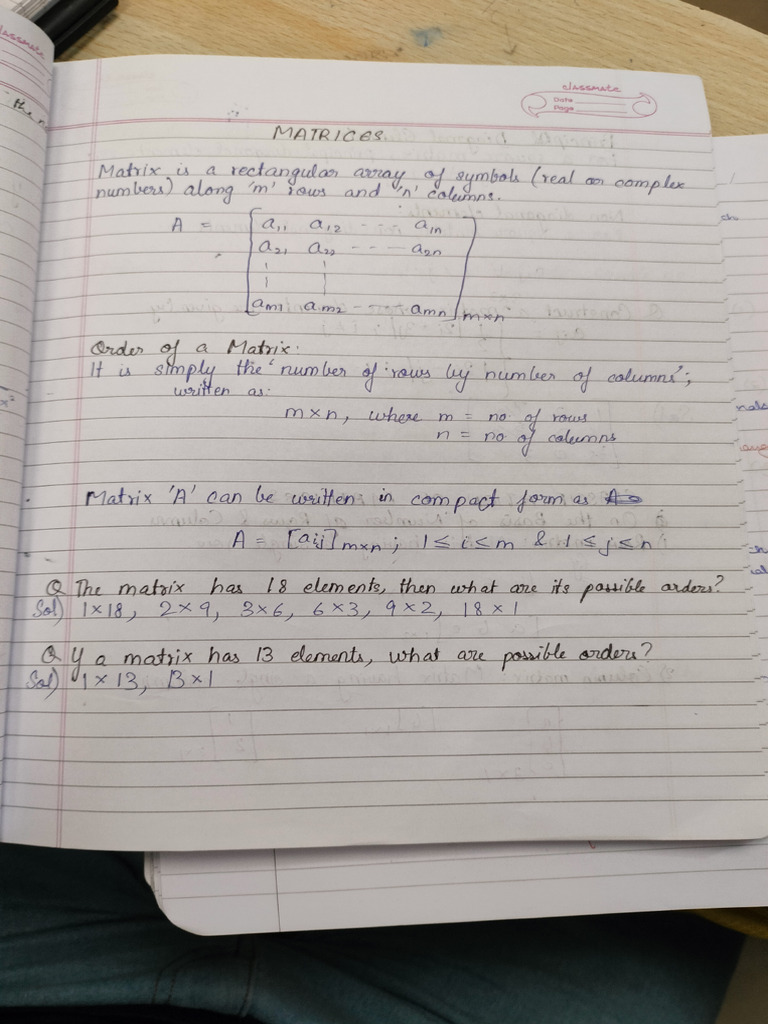 classmate
Date
Page
MATRICES
Matrix is a rectangular array of symbols (real or complex
numbers) along 'm' rows and 'n' columns.
A = [a11 a12 a1n
a21 a22 - - - a2n
am1 am2 - - amn]m×n
Order of a Matrix:
It is simply the 'number of rows by number of columns';
written as:
m×n, where m = no of rows
n = no of columns
Matrix 'A' can be written in compact form as
A = [aij]m×n ; 1≤i≤m & 1≤j≤n
Q The matrix has 18 elements, then what are its possible orders?
Sol) 1×18, 2×9, 3×6, 6×3, 9×2, 18×1
Q If a matrix has 13 elements, what are possible orders?
Sol) 1×13, 13×1